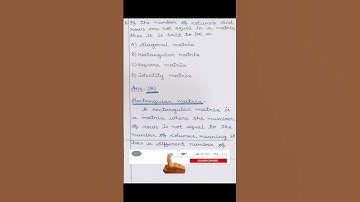 If the number of columns and
rows are not equal in a matrix
then it is said to be a
A) diagonal matrix
B) rectangular matrix
C) square matrix
D) identity matrix
Ans: (B)
Rectangular matrix:
A rectangular matrix is
a matrix where the number
of rows is not equal to the
number of columns, meaning it
has a different number of
SUBSCRIBE